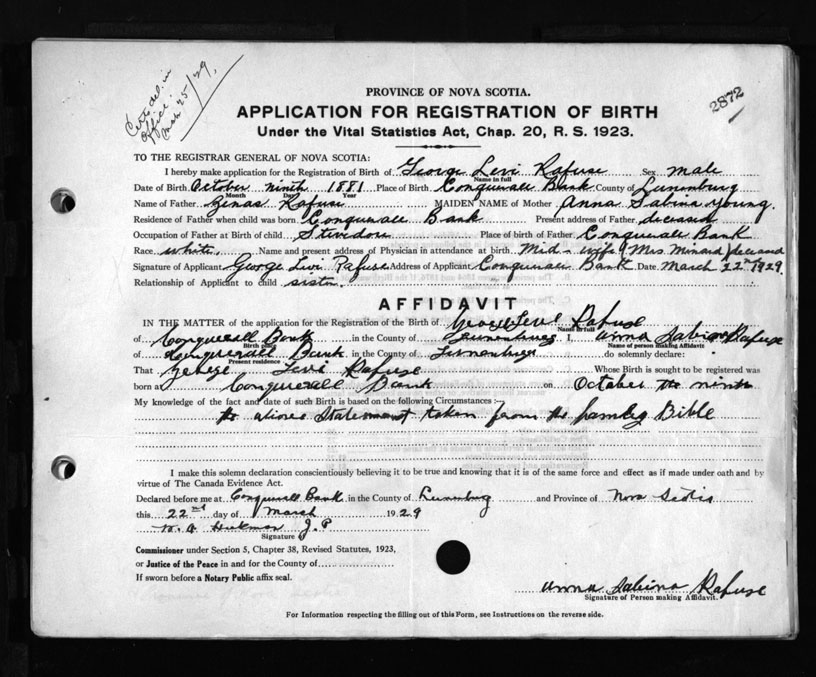 Certs del. in
Office.
Mar 25/29,
2872
PROVINCE OF NOVA SCOTIA.
APPLICATION FOR REGISTRATION OF BIRTH
Under the Vital Statistics Act, Chap. 20, R. S. 1923.
TO THE REGISTRAR GENERAL OF NOVA SCOTIA:
I hereby make application for the Registration of Birth of George Levi Rafuse Sex male
Name in full
Date of Birth October ninth 1881 Place of Birth Conquerall Bank County of Lunenburg
Month Day Year
Name of Father Zenas Rafuse MAIDEN NAME of Mother Anna Sabina Young.
Residence of Father when child was born Conquerall Bank Present address of Father deceased
Occupation of Father at Birth of child Stevedore Place of birth of Father Conquerall Bank
Race white. Name and present address of Physician in attendance at birth Mid-wife (Mrs Minard) deceased
Signature of Applicant George Levi Rafuse Address of Applicant Conquerall Bank Date March 22nd 1929.
Relationship of Applicant to child
AFFIDAVIT
IN THE MATTER of the application for the Registration of the Birth of George Levi Rafuse
Name in full
of Conquerall Bank in the County of Lunenburg I, Anna Sabina Rafuse
Birth place Name of person making Affidavit
of Conquerall Bank in the County of Lunenburg do solemnly declare:
Present residence
That George Levi Rafuse Whose Birth is sought to be registered was
born at Conquerall Bank on October the ninth
My knowledge of the fact and date of such Birth is based on the following Circumstances :—
the above Statement taken from the family Bible
I make this solemn declaration conscientiously believing it to be true and knowing that it is of the same force and effect as if made under oath and by
virtue of The Canada Evidence Act.
Declared before me at Conquerall Bank in the County of Lunenburg and Province of Nova Scotia
this 22nd day of March 1929
Hickman J.P
Signature of
Commissioner under Section 5, Chapter 38, Revised Statutes, 1923,
or Justice of the Peace in and for the County of
If sworn before a Notary Public affix seal.
Anna Sabina Rafuse
Signature of Person making Affidavit.
For Information respecting the filling out of this Form, see Instructions on the reverse side.